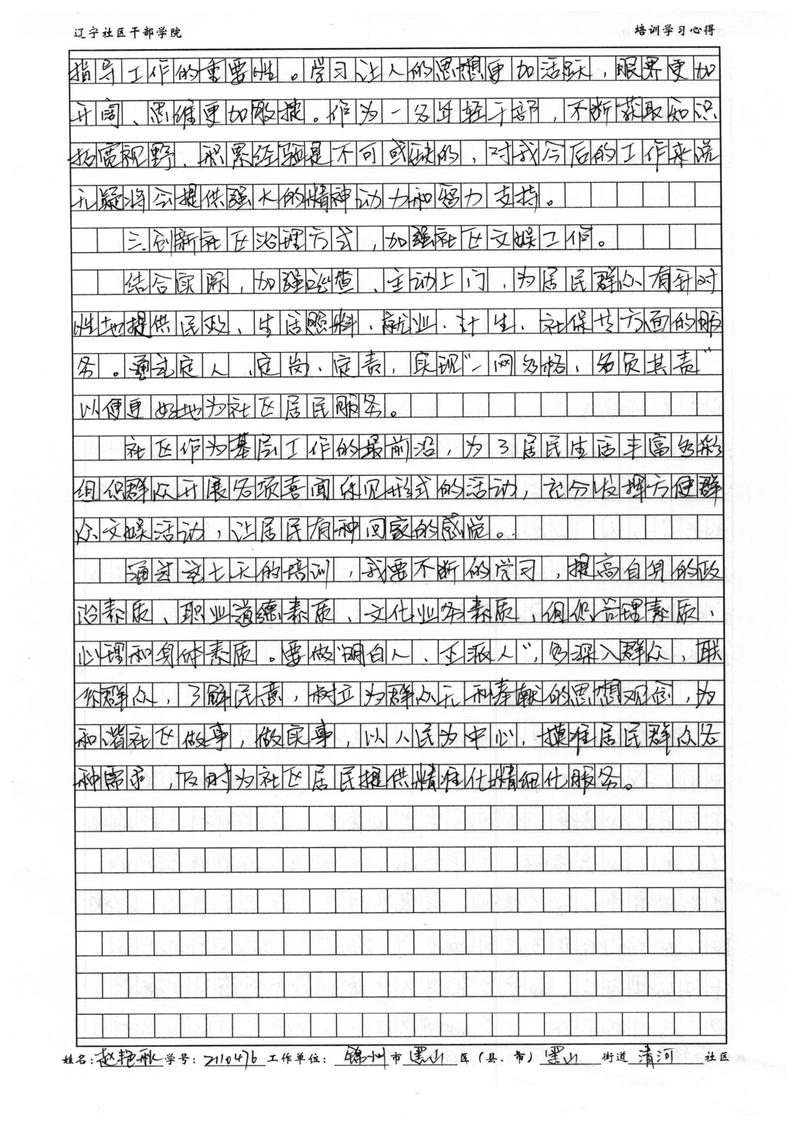 辽宁社区干部学院 培训学习心得
指导工作的重要性。学习让人的思想更加活跃,眼界更加
开阔、思维更加敏捷。作为一名年轻干部,不断获取知识
拓宽视野、积累经验是不可或缺的,对我今后的工作来说
无疑将会提供强大的精神动力和智力支持。
三.创新社区治理方式,加强社区文娱工作。
结合实际,加强巡查、主动上门,为居民群众有针对
性地提供民政、生活照料、就业、计生、社保共方面的服
务。通过定人、定岗、定责,实现“一网多格,多负其责”
以便更好地为社区居民服务。
社区作为基层工作的最前沿,为了居民生活丰富多彩
组织群众开展各项喜闻乐见形式的活动,充分发挥方便群
众文娱活动,让居民有种回家的感觉。
通过这七天的培训,我要不断的学习,提高自身的政
治素质、职业道德素质、文化业务素质,组织管理素质、
心理和身体素质。要做“明白人、正派人”,多深入群众,联
系群众,了解民意,树立为群众无私奉献的思想观念,为
和谐社区做事,做实事,以人民为中心,摸准居民群众各
种需求,及时为社区居民提供精准化精细化服务。
姓名:赵艳秋 学号:2110476 工作单位:锦州市黑山区(县、市)黑山街道清河社区